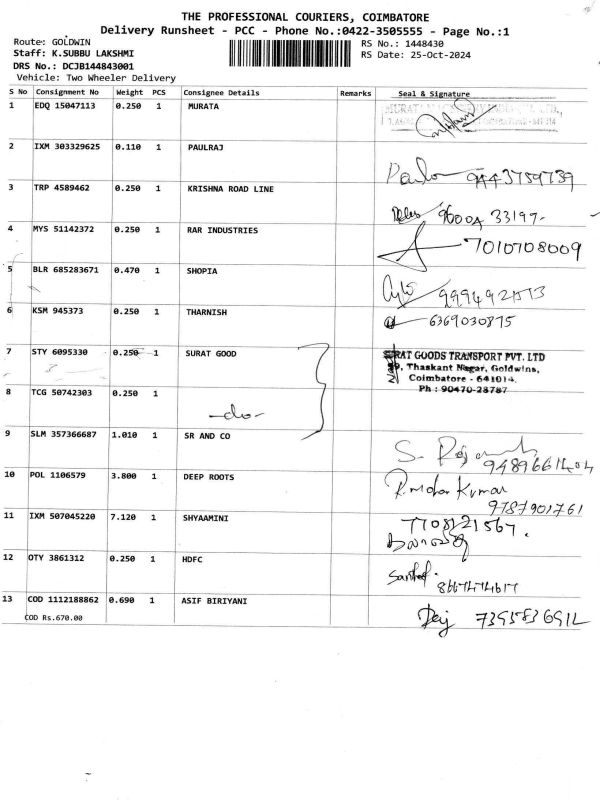 THE PROFESSIONAL COURIERS, COIMBATORE
Delivery Runsheet - PCC - Phone No.:0422-3505555 - Page No.:1
Route: GOLDWIN
RS No.: 1448430
Staff: K.SUBBU LAKSHMI
RS Date: 25-Oct-2024
DRS No.: DCJB144843001
Vehicle: Two Wheeler Delivery
S No Consignment No Weight PCS Consignee Details Remarks Seal & Signature
1 EDQ 15047113 0.250 1 MURATA
2 IXM 303329625 0.110 1 PAULRAJ
9443759739
3 TRP 4589462 0.250 1 KRISHNA ROAD LINE
96004 33197-
4 MYS 51142372 0.250 1 RAR INDUSTRIES
7010708009
5 BLR 685283671 0.470 1 SHOPIA
6 KSM 945373 0.250 1 THARNISH
6369030875
7 STY 6095330 0.250 1 SURAT GOOD
RAT GOODS TRANSPORT PVT. LTD
, Thaskant Nagar, Goldwins,
Coimbatore - 641014.
Ph : 90470-28787
8 TCG 50742303 0.250 1
-do-
9 SLM 357366687 1.010 1 SR AND CO
10 POL 1106579 3.800 1 DEEP ROOTS
R.mohan Kumar
9787901761
11 IXM 507045220 7.120 1 SHYAAMINI
7708121567.
12 OTY 3861312 0.250 1 HDFC
8667474617
13 COD 1112188862 0.690 1 ASIF BIRIYANI
7395836912
COD Rs.670.00